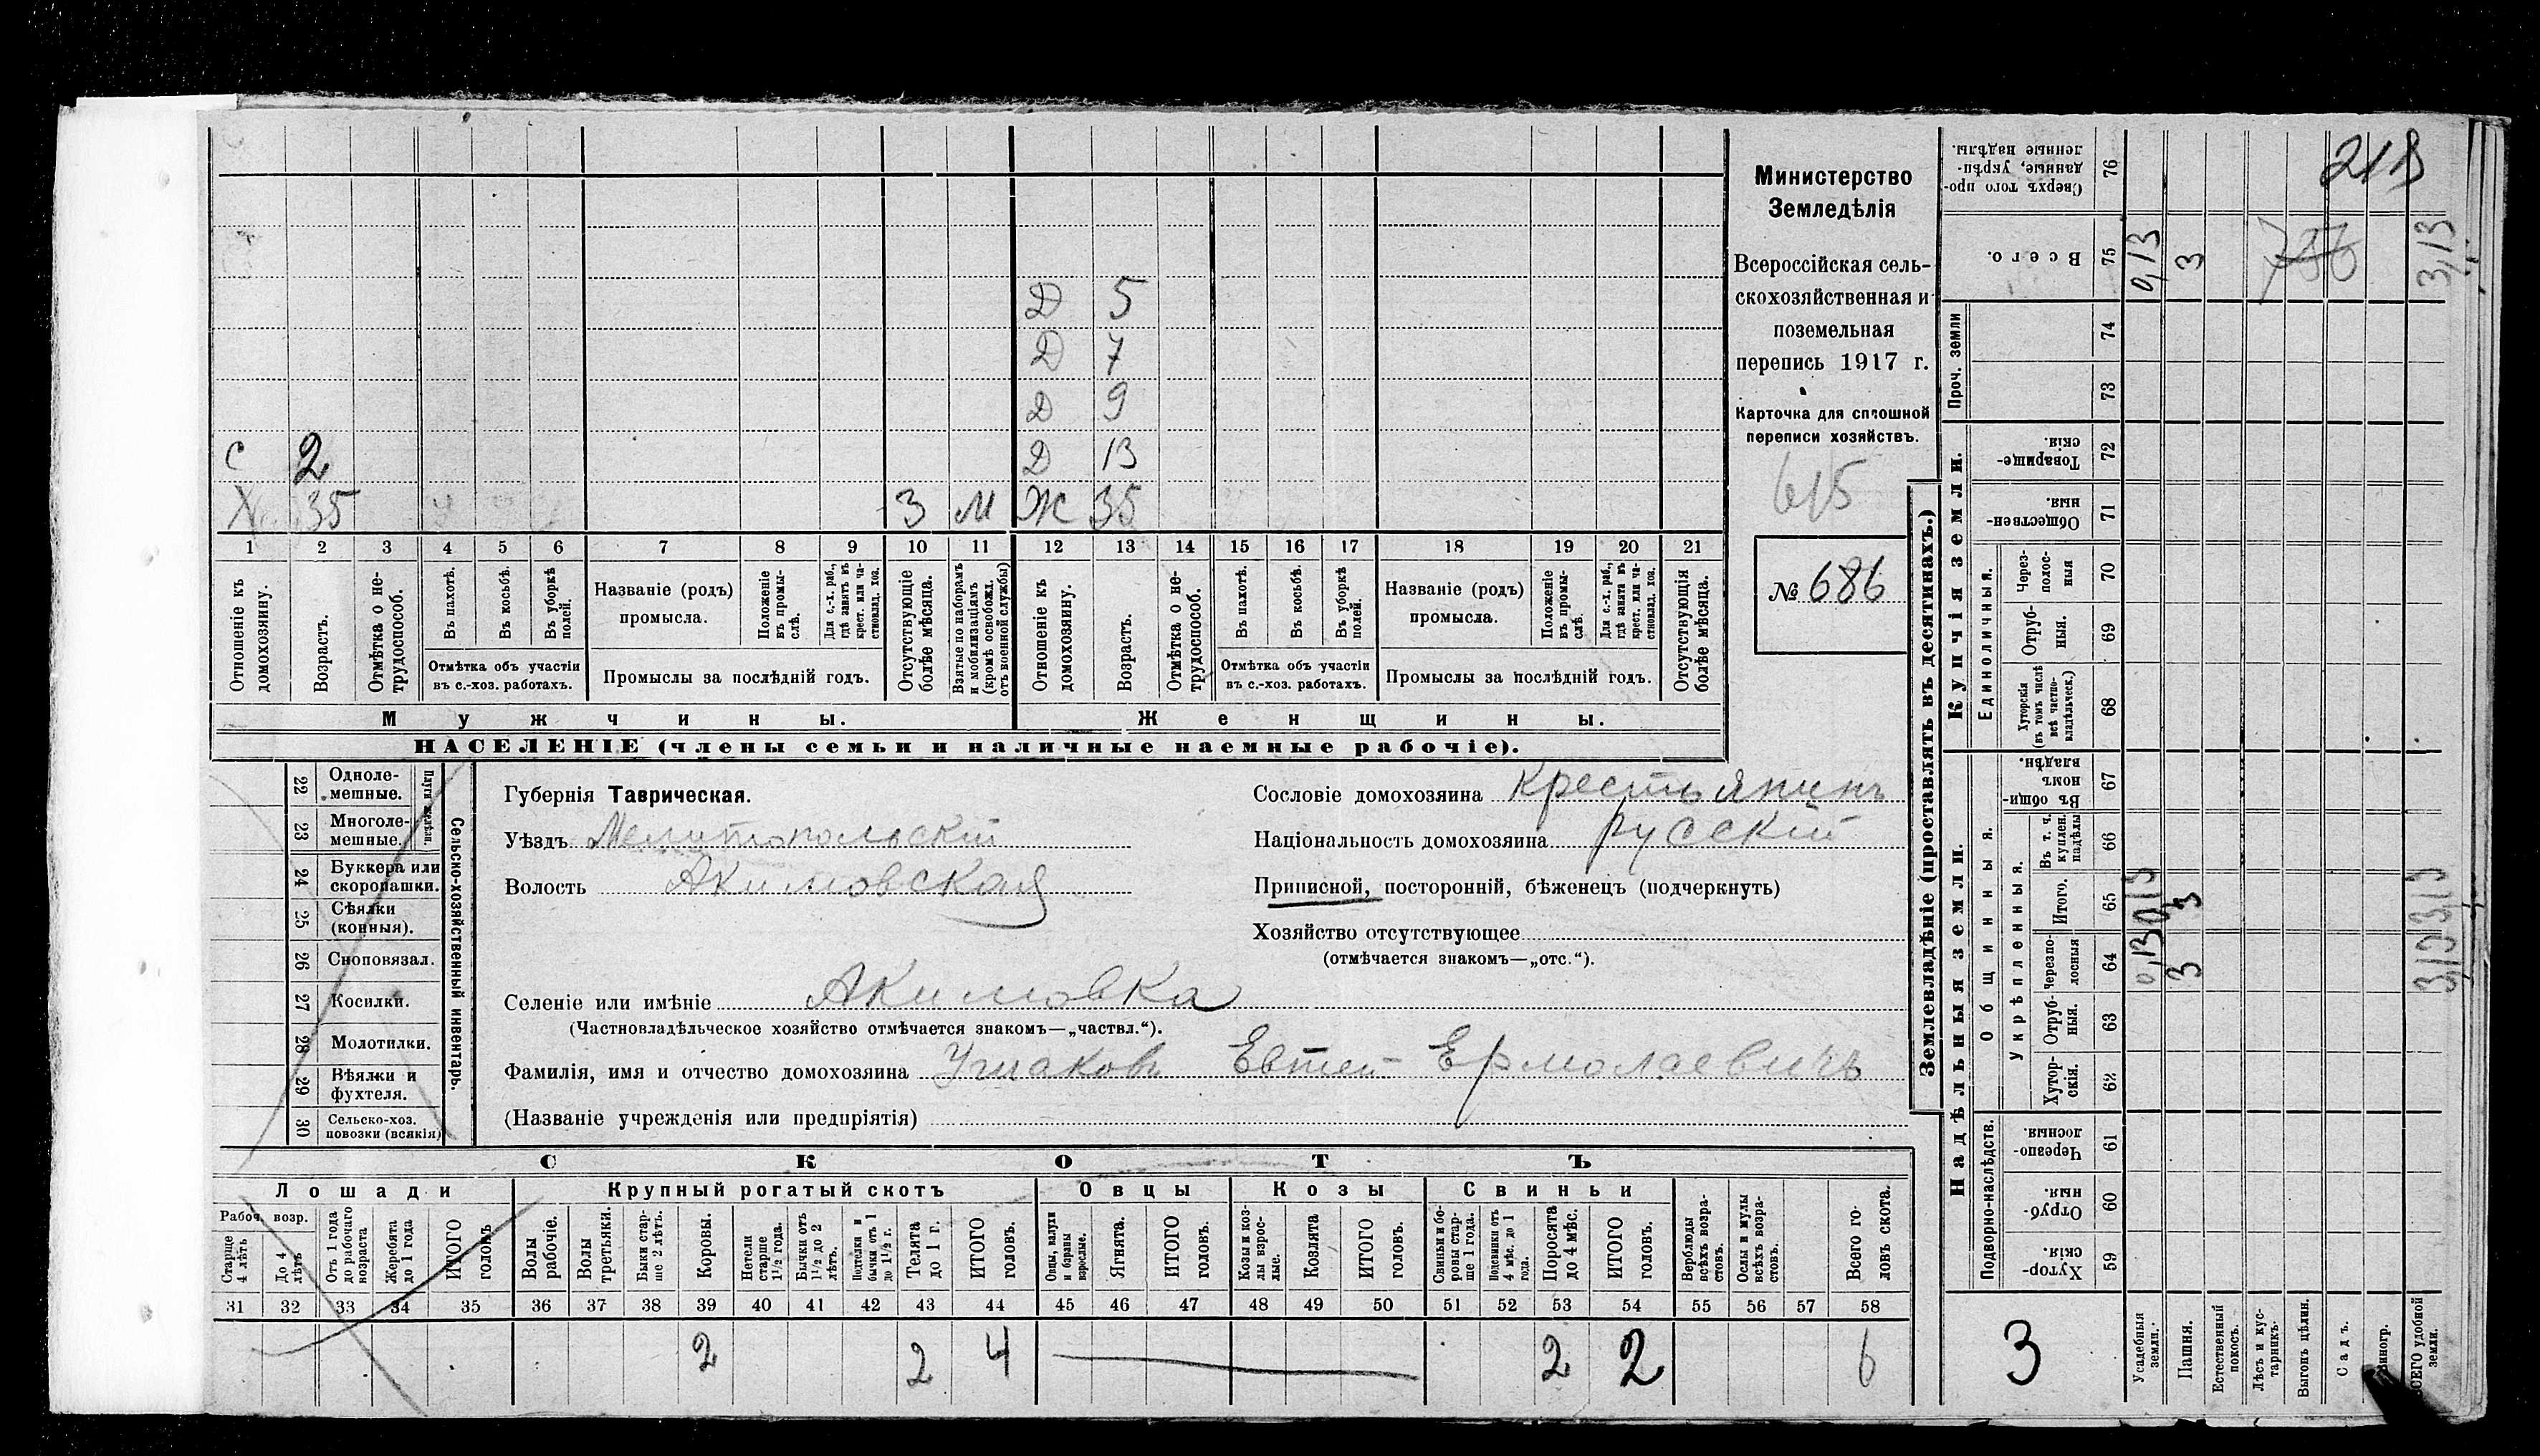 Министерство
Земледѣлія
Всероссійская сель-
скохозяйственная и
поземельная
перепись 1917 г.
Карточка для сплошной
переписи хозяйствъ.
615
№ 686
Д 5
Д 7
Д 9
С 2 Д 13
Х 35 3 М Ж 35
1 2 3 4 5 6 7 8 9 10 11 12 13 14 15 16 17 18 19 20 21
Отношеніе къ домохозяину.
Возрастъ.
Отмѣтка о не-трудоспособ.
Въ пахотѣ.
Въ косьбѣ.
Въ уборкѣ полей.
Отмѣтка объ участіи
въ с.-хоз. работахъ.
Названіе (родъ)
промысла.
Положеніе въ промы-слѣ.
Для с.-х. раб., гдѣ занятъ въ крест. или ча-стновлад. хоз.
Промыслы за послѣдній годъ.
Отсутствующіе болѣе мѣсяца.
Взятые по наборамъ и мобилизаціямъ (кромѣ освобожд. отъ военной службы)
Отношеніе къ домохозяину.
Возрастъ.
Отмѣтка о не-трудоспособ.
Въ пахотѣ.
Въ косьбѣ.
Въ уборкѣ полей.
Отмѣтка объ участіи
въ с.-хоз. работахъ.
Названіе (родъ)
промысла.
Положеніе въ промы-слѣ.
Для с.-х. раб., гдѣ занята въ крест. или ча-стновлад. хоз.
Промыслы за послѣдній годъ.
Отсутствующія болѣе мѣсяца.
Мужчины. Женщины.
НАСЕЛЕНІЕ (члены семьи и наличные наемные рабочіе).
22 Одноле-мешные.
23 Многоле-мешные.
24 Буккера или скоропашки.
25 Сѣялки (конныя).
26 Сноповязал.
27 Косилки.
28 Молотилки.
29 Вѣялки и фухтеля.
30 Сельско-хоз. повозки (всякія)
Сельско-хозяйственный инвентарь.
Губернія Таврическая.
Уѣздъ Мелитопольскій
Волость Акимовская
Сословіе домохозяина крестьянинъ
Національность домохозяина русскій
Приписной, посторонній, бѣженецъ (подчеркнуть)
Хозяйство отсутствующее
(отмѣчается знакомъ—„отс.“).
Селеніе или имѣніе Акимовка
(Частновладѣльческое хозяйство отмѣчается знакомъ—„частвл.“).
Фамилія, имя и отчество домохозяина Ушаковъ Евтей Ермолаевичъ
(Названіе учрежденія или предпріятія)
СКОТЪ
Лошади Крупный рогатый скотъ Овцы Козы Свиньи
Рабоч. возр.
Старше 4 лѣтъ
До 4 лѣтъ
Отъ 1 года до рабочаго возраста
Жеребята до 1 года
ИТОГО головъ
Волы рабочіе.
Волы третьяки.
Быки стар-ше 2 лѣтъ.
Коровы.
Нетели старше 1½ года.
Бычки отъ 1½ до 2 лѣтъ.
Подтелки и бычки отъ 1 до 1½ г.
Телята до 1 г.
ИТОГО головъ.
Овцы, валухи и бараны взрослые.
Ягнята.
ИТОГО головъ.
Козы и коз-лы взрос-лые.
Козлята
ИТОГО головъ.
Свиньи и бо-ровы стар-ше 1 года.
Подсвинки отъ 4 мѣс. до 1 года.
Поросята до 4 мѣс.
ИТОГО головъ.
Верблюды всѣхъ возра-стовъ.
Ослы и мулы всѣхъ возра-стовъ.
Всего го-ловъ скота.
31 32 33 34 35 36 37 38 39 40 41 42 43 44 45 46 47 48 49 50 51 52 53 54 55 56 57 58
2 2 4 2 2 6
Землевладѣніе (проставлять въ десятинахъ.)
Купчія земли.
Надѣльныя земли.
Проч. земли
Единоличныя.
Общинныя.
Укрѣпленныя.
Подворно-наслѣдств.
Сверхъ того про-данные, укрѣп-ленные надѣлы. 76
213
Всего. 75 0,13 3 736 3,13
74
73
Товарище-скія. 72
Обществен-ныя. 71
Через-полос-ныя 70
Отруб-ныя. 69
Хуторскія (въ томъ числѣ всѣ частно-владѣльческ.) 68
Въ общи-номъ владѣн. 67
Въ т. ч. куплен. надѣлы 66
Итого. 65 0,13 3 3,13
Черезпо-лосныя 64 0,13 3 3,13
Отруб-ныя. 63
Хутор-скія. 62
Черезпо-лосныя. 61
Отруб-ныя. 60
Хутор-скія. 59
3
Усадебныя земли.
Пашня.
Естественный покосъ.
Лѣсъ и кус-тарникъ.
Выгонъ цѣлин.
Садъ.
Виногр.
ВСЕГО удобной земли.